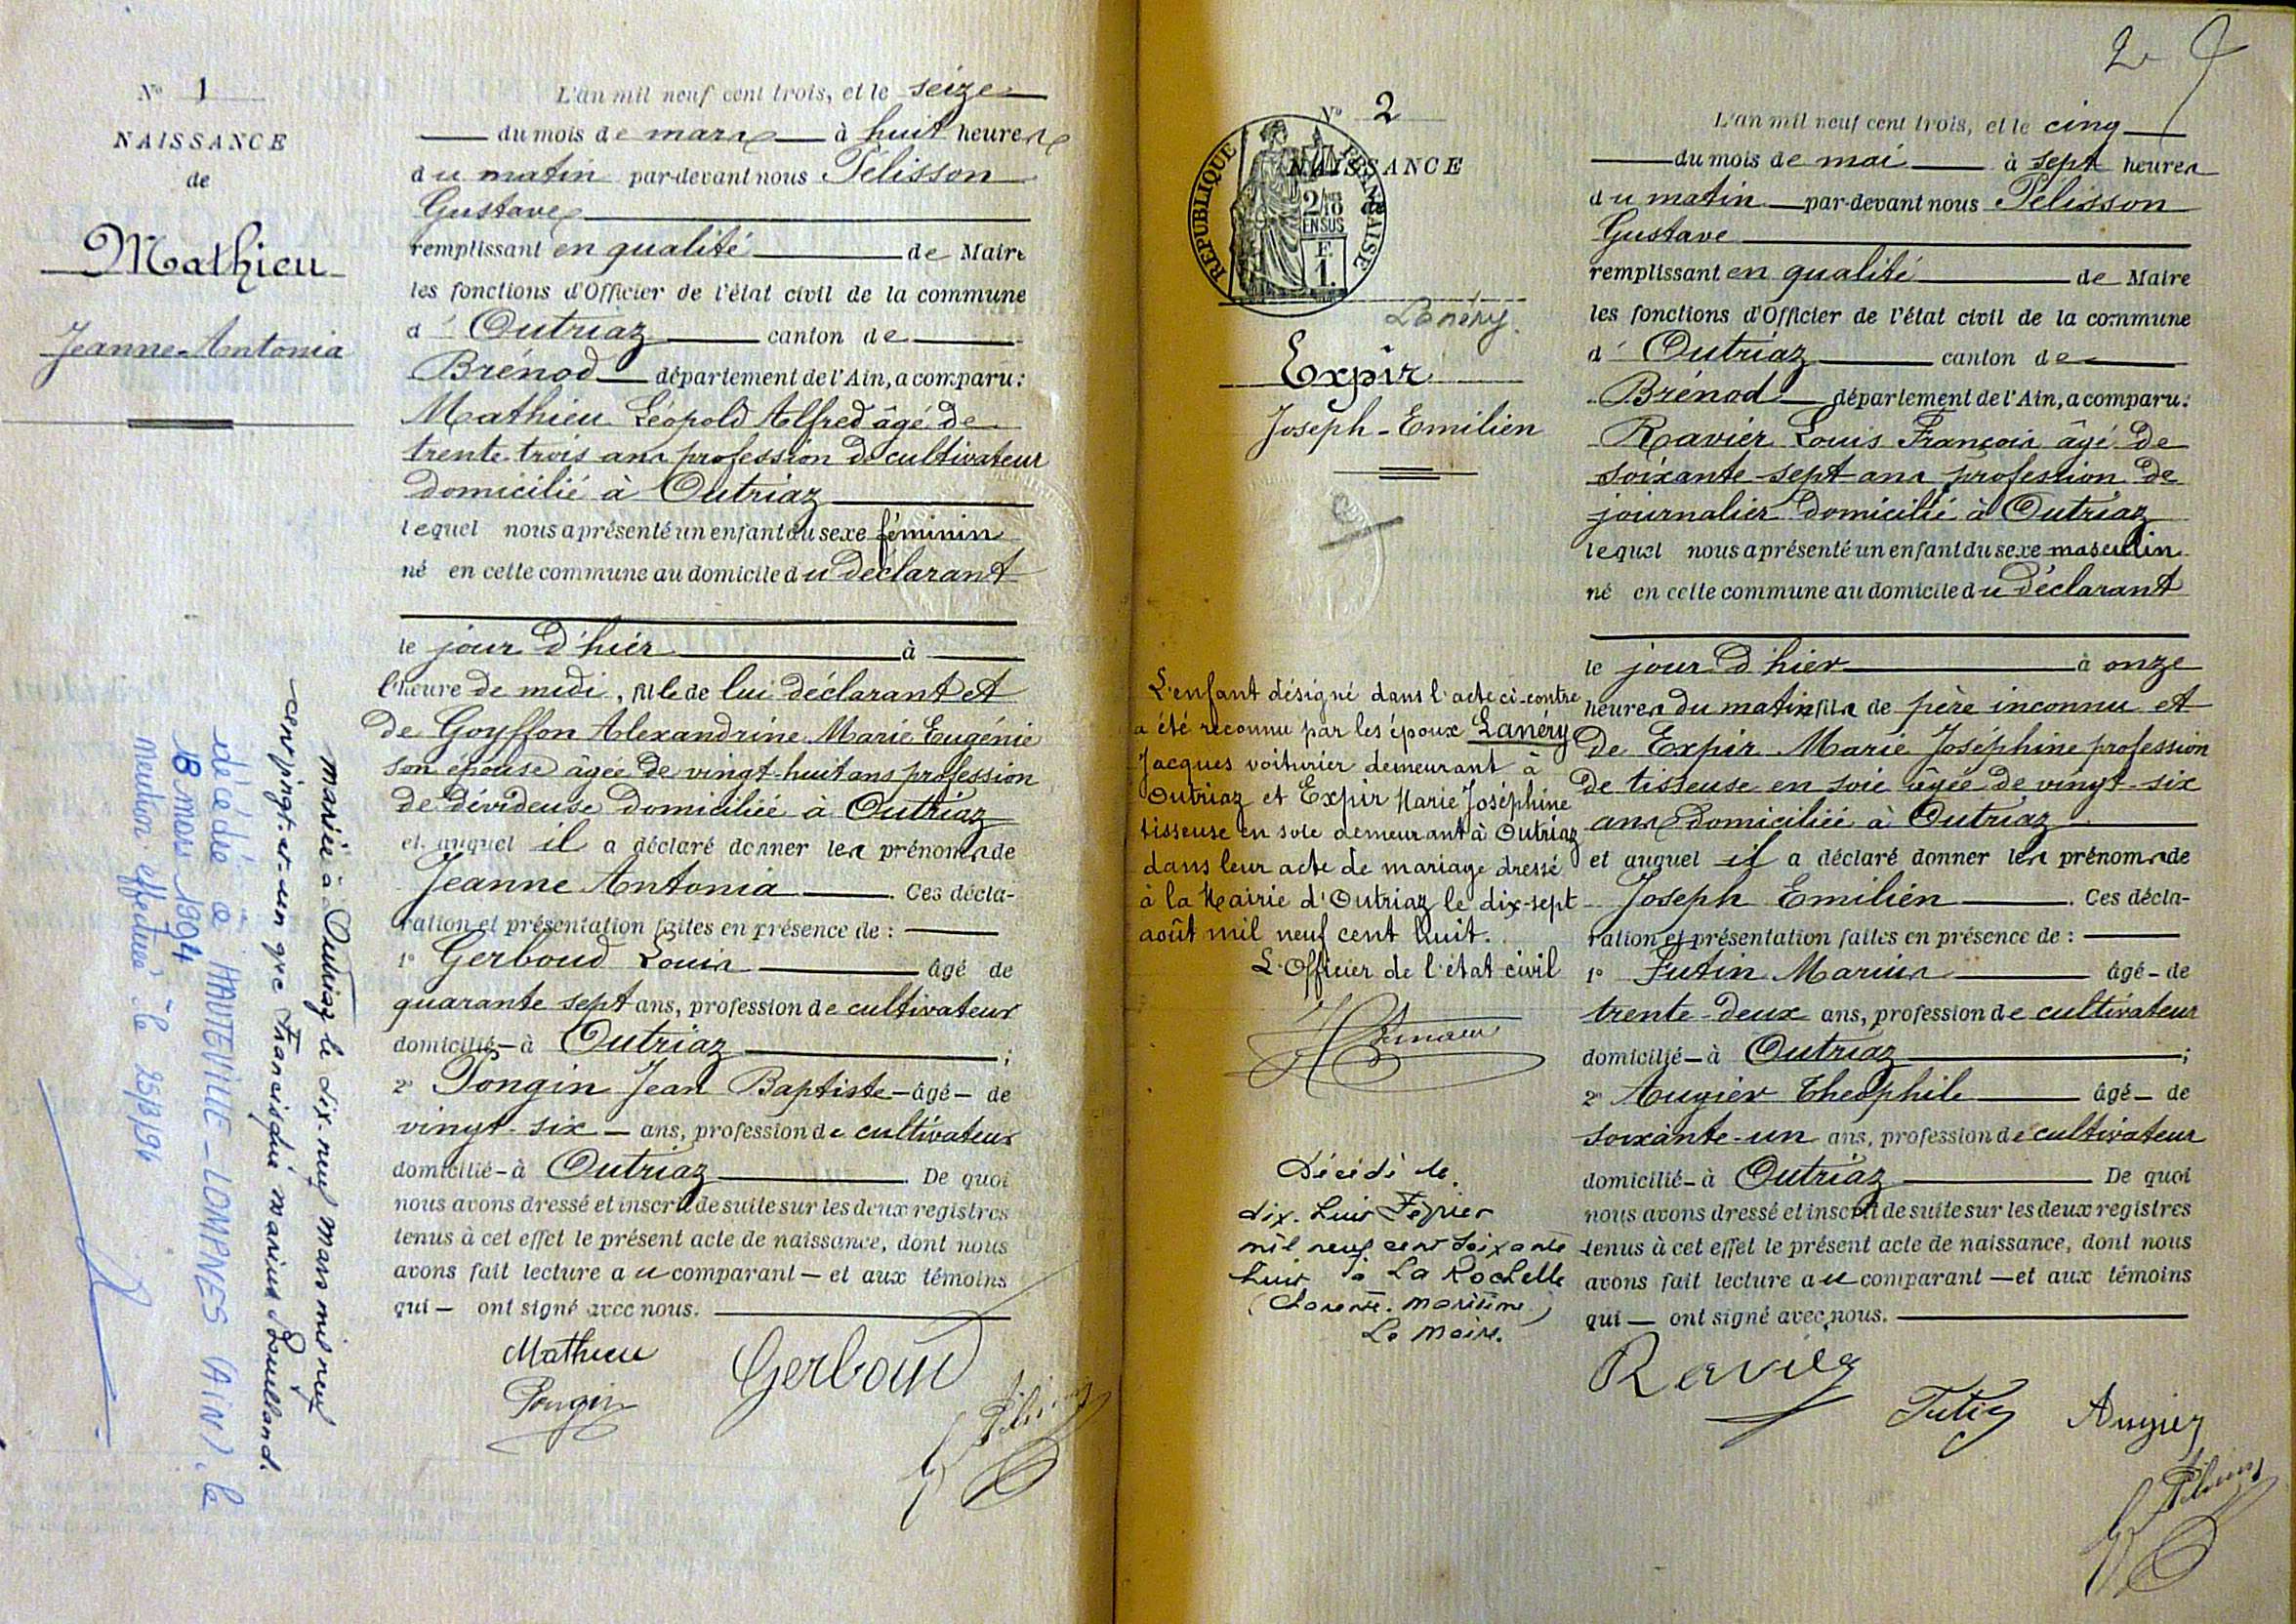 N° 1
NAISSANCE
de
Mathieu
Jeanne-Antonia
L'an mil neuf cent trois, et le seize
du mois de mars à huit heures
du matin par-devant nous Pélisson
Gustave
remplissant en qualité de Maire
les fonctions d'Officier de l'état civil de la commune
d' Outriaz canton de
Brénod département de l'Ain, a comparu :
Mathieu Léopold Alfred âgé de
trente-trois ans profession de cultivateur
domicilié à Outriaz
lequel nous a présenté un enfant du sexe féminin
né en cette commune au domicile du déclarant
le jour d'hier à
l'heure de midi, fille de lui déclarant et
de Goyffon Alexandrine Marie Eugénie
son épouse âgée de vingt-huit ans profession
de dévideuse domiciliée à Outriaz
et auquel il a déclaré donner les prénoms de
Jeanne Antonia . Ces décla-
ration et présentation faites en présence de :
1° Gerboud Louis âgé de
quarante sept ans, profession de cultivateur
domicilié à Outriaz ;
2° Pongin Jean Baptiste âgé de
vingt-six ans, profession de cultivateur
domicilié à Outriaz . De quoi
nous avons dressé et inscrit de suite sur les deux registres
tenus à cet effet le présent acte de naissance, dont nous
avons fait lecture au comparant et aux témoins
qui ont signé avec nous.
Mathieu
Gerboud
Pongin
Pélisson
mariée à Outriaz le dix-neuf mars mil neuf
cent vingt-et-un avec Francisque Marius
décédée à HAUTEVILLE-LOMPNES (AIN), le
18 mars 1994
Mention effectuée le 25/3/94
2
N° 2
NAISSANCE
de
REPUBLIQUE FRANÇAISE
2/10
EN SUS
F.
1.
Lanéry.
Expir
Joseph-Emilien
L'enfant désigné dans l'acte ci-contre
a été reconnu par les époux Lanéry
Jacques voiturier demeurant à
Outriaz et Expir Marie Joséphine
tisseuse en soie demeurant à Outriaz
dans leur acte de mariage dressé
à la Mairie d'Outriaz le dix-sept
août mil neuf cent huit.
L'Officier de l'état civil
Décédé le
dix-huit Février
mil neuf cent soixante
huit à La Rochelle
(Charente-Maritime)
Le Maire.
L'an mil neuf cent trois, et le cinq
du mois de mai à sept heures
du matin par-devant nous Pélisson
Gustave
remplissant en qualité de Maire
les fonctions d'Officier de l'état civil de la commune
d' Outriaz canton de
Brénod département de l'Ain, a comparu :
Ravier Louis François âgé de
soixante-sept ans profession de
journalier domicilié à Outriaz
lequel nous a présenté un enfant du sexe masculin
né en cette commune au domicile du déclarant
le jour d'hier à onze
heures du matin fils de père inconnu et
de Expir Marie Joséphine profession
de tisseuse en soie âgée de vingt-six
ans domiciliée à Outriaz
et auquel il a déclaré donner les prénoms de
Joseph Emilien . Ces décla-
ration et présentation faites en présence de :
1° Tutin Marius âgé de
trente-deux ans, profession de cultivateur
domicilié à Outriaz ;
2° Augier Théophile âgé de
soixante-un ans, profession de cultivateur
domicilié à Outriaz De quoi
nous avons dressé et inscrit de suite sur les deux registres
tenus à cet effet le présent acte de naissance, dont nous
avons fait lecture au comparant et aux témoins
qui ont signé avec nous.
Ravier
Tutin
Augier
Pélisson